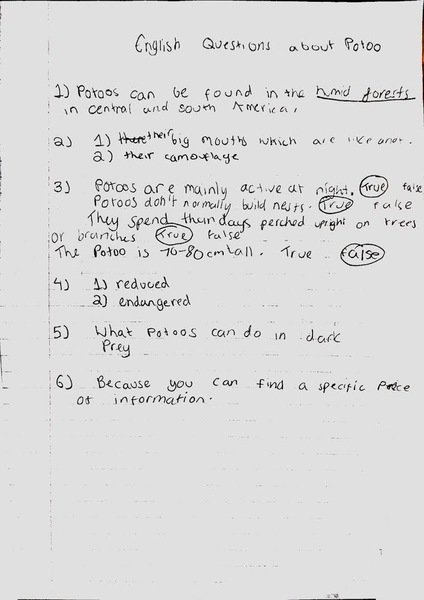 English Questions about Potoo
1) Potoos can be found in the humid forests
in central and south America.
2) 1) their big mouths which are like
2) their camouflage
3) Potoos are mainly active at night. True false
Potoos don't normally build nests. True False
They spend their days perched upright on trees
or branches True false
The Potoo is 70-80cm tall. True false
4) 1) reduced
2) endangered
5) What Potoos can do in dark
Prey
6) Because you can find a specific Peice
of information.